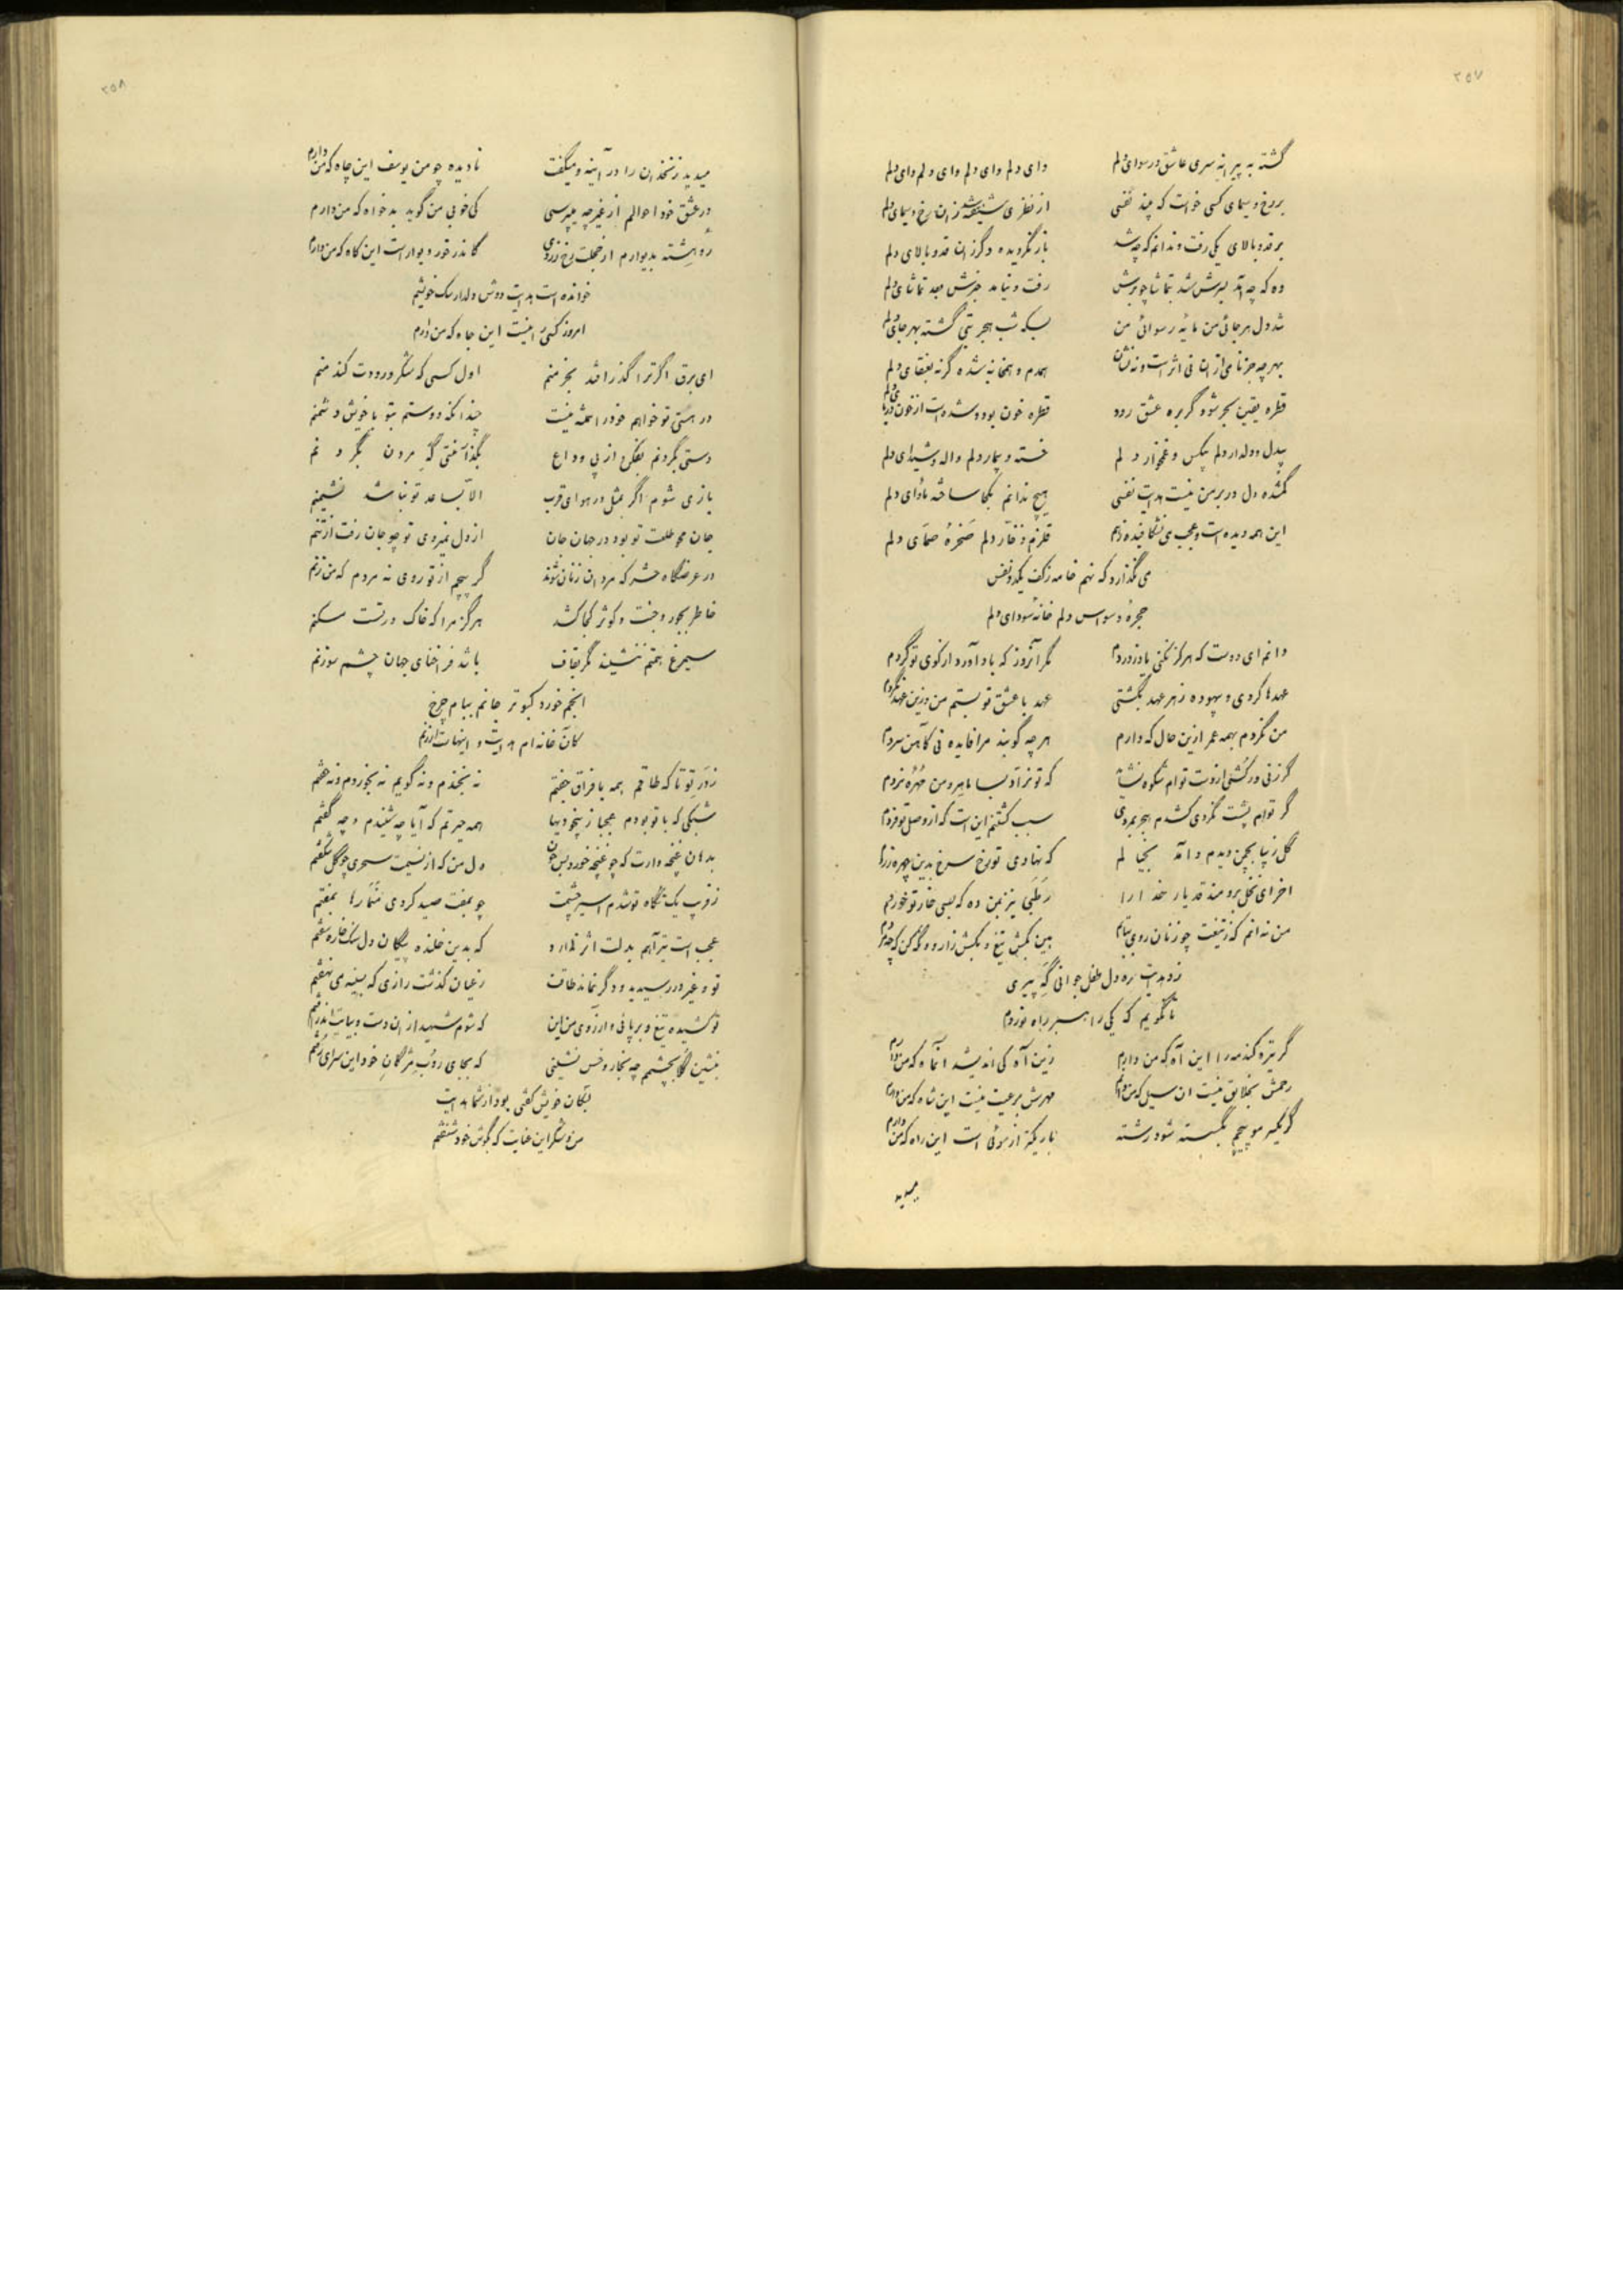 ۲۵۷
گشته به پیرانه سری عاشق و رسوای دلم
وای دلم وای دلم وای دلم وای دلم
بر رخ و سیمای کسی خواست که بیند نفسی
از نظری شیفته شد زان رخ و سیمای دلم
بر قد و بالای یکی رفت و ندانم که چه شد
باز نگردیده دگر زان قد و بالای دلم
وه که چه آمد بسرش شد بتماشا چو برش
رفت و نیامد خبرش بعد تماشای دلم
شد دل هرجائی من مایه رسوائی من
بسکه شب هجر بتی گشته بهر جای دلم
بهر چه جز نامی از آن نی اثر است و نه نشان
همدم و همخانه شده گرنه بعنقای دلم
قطره یقین بحر شود گر بره عشق رود
قطره خون بود و شده است از خون دریای دلم
بیدل و دلدار دلم بیکس و غمخوار دلم
خسته و بیمار دلم واله و شیدای دلم
گمشده دل در بر من نیست هدایت نفسی
هیچ ندانم بکجا ساخته مأوای دلم
این همه دیده است و عجب می نشکافیده ز هم
قلزم زخار دلم صخره صمای دلم
می نگذارد که نهم خامه ز کف یکدو نفس
حجره وسواس دلم خانه سودای دلم
دانم ای دوست که هرگز نکنی یاد ز دردم
مگر آنروز که باد آورد از کوی تو گردم
عهدها کردی و بیهوده ز هر عهد بگشتی
عهد با عشق تو بستم من و زین عهد نگردم
من نگردم بهمه عمر ازین حال که دارم
هر چه گویند مرا فایده نی کآهن سردم
گر زنی ور کشی از دست توام شکوه نشاید
که تو نراد بسا ماهر و من مهره نردم
گر توام پشت نگردی کشدم هجر بمردی
سبب کشتنم این است که از وصل تو فردم
گل زیبا بچمن دیدم و آمد بخیالم
که نهادی تو رخ سرخ بدین چهره زردم
آخر ای نخل برومند قد یار خدا را
رطبی نیز بمن ده که بسی خار تو خوردم
من نه آنم که ز تیغت چو زنان روی بتابم
هین بکش تیغ و بکش زار و نگه کن که چه مردم
زد هدایت ره دل طفل جوانی گه پیری
تا نگویم که یکی راهبر راه نوردم
گر تیره کند مه را این آه که من دارم
زین آه کی اندیشد آنماه که من دارم
رحمش بخلایق نیست آن سیل که من دارم
مهرش برعیت نیست این شاه که من دارم
گر یکسر مو پیچم بگسسته شود رشته
باریکتر از موئی است این راه که من دارم
میدید
۲۵۸
میدید زنخدان را در آینه و میگفت
نادیده چو من یوسف این چاه که من دارم
در عشق خود احوالم از غیر چه میپرسی
کی خوبی من گوید بدخواه که من دارم
رو هشته بدیوارم از خجلت رخ زردی
کاندر خور دیوار است این کاه که من دارم
خوانده است هدایت دوش دلدار سگ خویشم
امروز کسی را نیست این جاه که من دارم
ای برق اگر ترا گذر افتد بخرمنم
اول کسی که شکر ورودت کند منم
در هستی تو خواهم خود را همه نیست
چندانکه دوستم بتو با خویش دشمنم
دستی بگردنم بفکن از پی وداع
بگذار منتی گه مردن بگردنم
بازی شوم اگر بمثل در هوای قرب
الا بساعد تو نباشد نشیمنم
جان محو طلعت تو بود در جهان جان
از دل نمیروی تو چو جان رفت از تنم
در عرضگاه حشر که مردان زنان شوند
گر پیچم از تو روی نه مردم که من زنم
خاطر بحور و جنت و کوثر کجا کشد
هرگز مرا که خاک درتست مسکنم
سیمرغ همتم ننشیند مگر بقاف
باشد فراخنای جهان چشم سوزنم
انجم خورد کبوتر جانم ببام چرخ
کان خانه ام هدایت و اینهاست ارزنم
ز در تو تا که طاقم همه با فراق جفتم
نه بخندم و نه گویم نه بخوردم و نه خفتم
شبکی که با تو بودم عجبا ز بیخودیها
همه حیرتم که آیا چه شنیدم و چه گفتم
بدهان غنچه وارت که چو غنچه خورد بس خون
دل من که از نسیمت سحری چو گل شکفتم
ز فریب یک نگاه تو شدم اسیر چشمت
چو بمفت صید کردی مشمار ها بمفتم
عجب است تیر آهم بدلت اثر ندارد
که بدین خلنده پیکان دل سنگ خاره سفتم
تو و غیر در رسیدید و دگر نماند طاقت
ز عیان گذشت رازی که بسینه می نهفتم
تو کشیده تیغ و بر پائی و آرزوی من این
که شوم شهید از آن دست و بپایت اندر افتم
بنشین گلا بچشمم چه بخار و خس نشینی
که بجاروب مژگان خود این سرای رفتم
سگان خویش گفتی بود از شما هدایت
من و شکر این عنایت که بگوش خود شنفتم